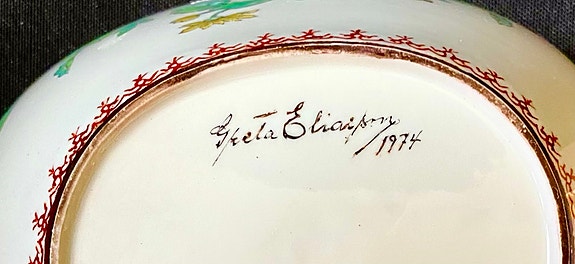 Greta Eliason
1974